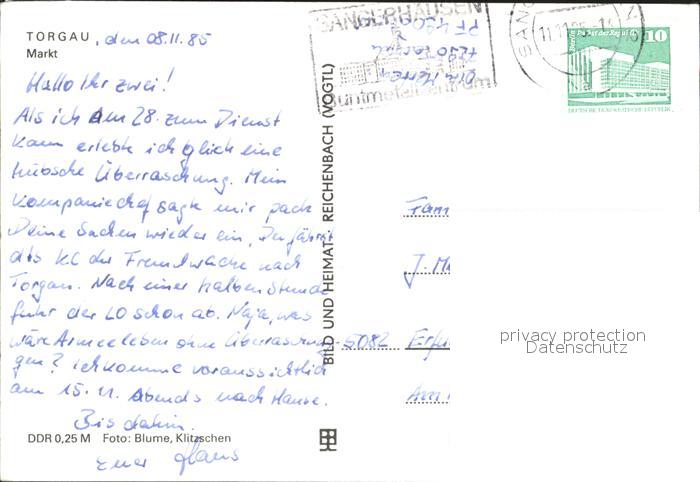 TORGAU, den 08.11.85
Markt
Hallo Ihr zwei!
Als ich am 28. zum Dienst
kam erlebte ich gleich eine
hübsche Überraschung. Mein
Kompaniechef sagte mir pack
Deine Sachen wieder ein, Du fährst
als KC der Fremdwache nach
Torgau. Nach einer halben Stunde
fuhr der LO schon ab. Naja, was
wäre Armeeleben ohne Überraschun-
gen? Ich komme voraussichtlich
am 15.11. Abends nach Hause.
Bis dahin.
Euer Hans
DDR 0,25 M Foto: Blume, Klitzschen
BILD UND HEIMAT · REICHENBACH (VOGTL)
SANGERHAUSEN
PF 490
7290 Torgau
Buntmetallzentrum
SANG
11.11.85
Berlin Palast der Republik
10
DEUTSCHE DEMOKRATISCHE REPUBLIK
Fam
J. M
5082 Erfu
Am
privacy protection
Datenschutz